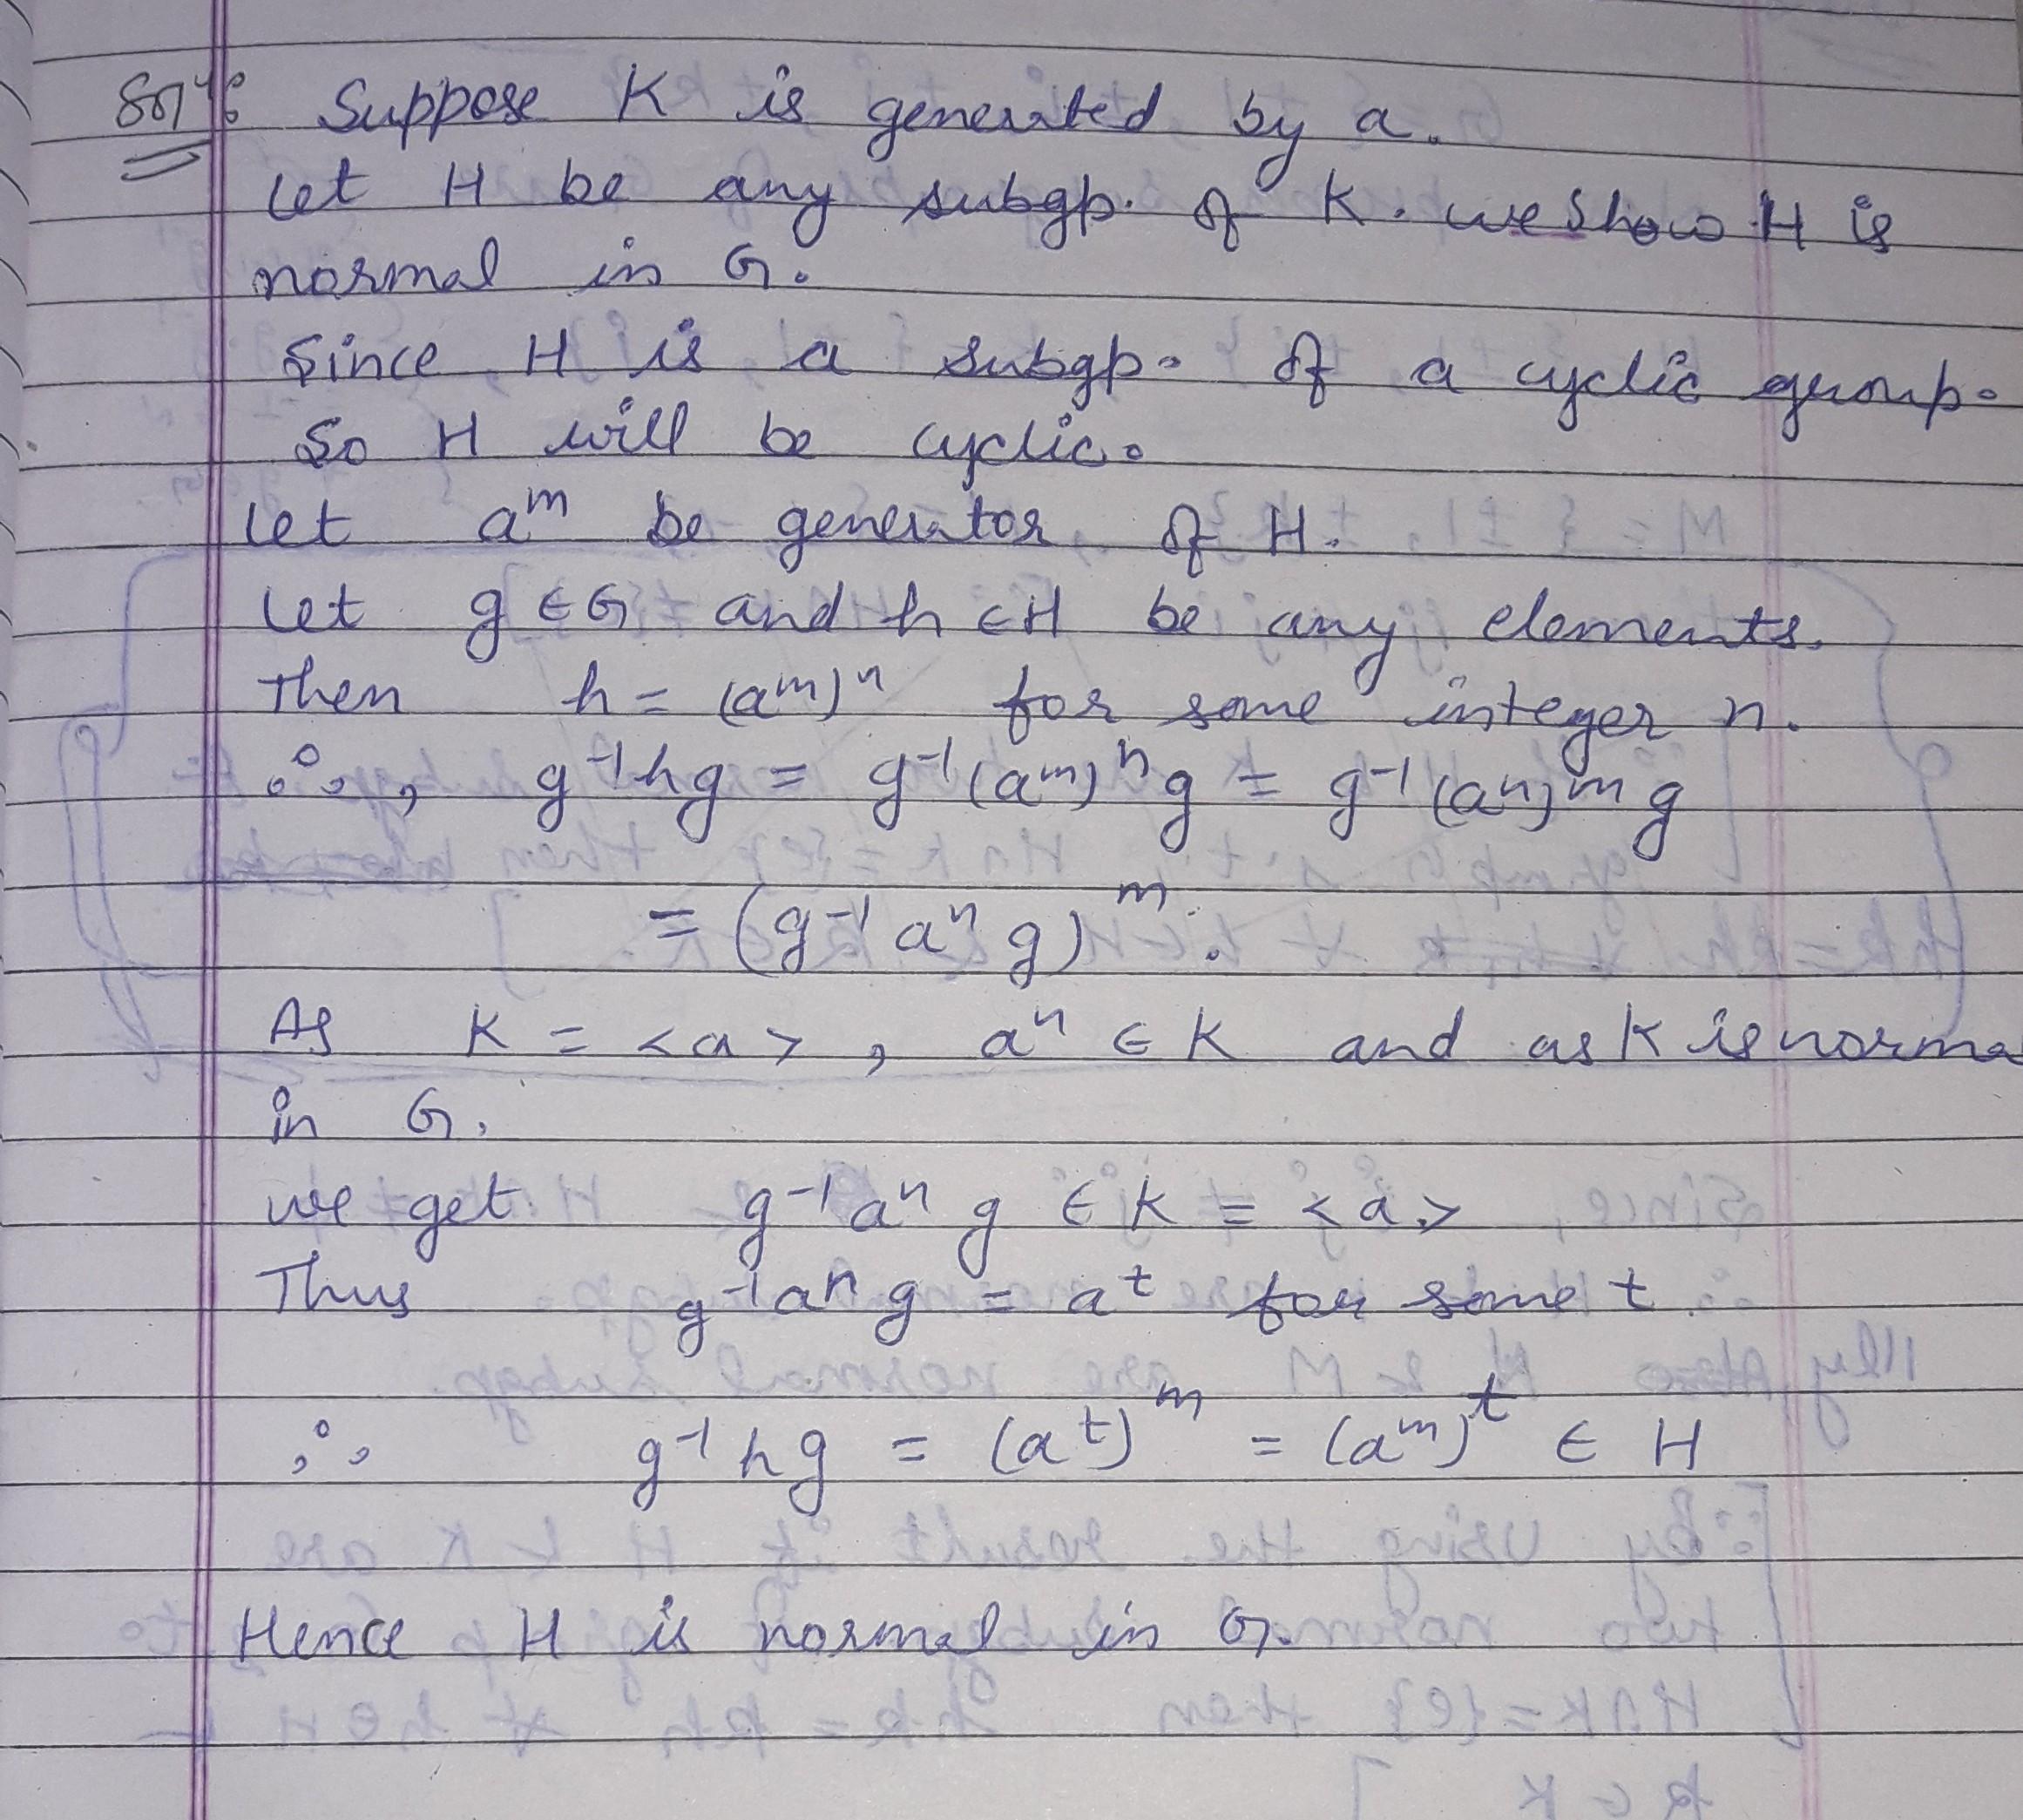 Solⁿ: Suppose K is generated by a.
Let H be any subgp. of K. we show H is
normal in G.
Since H is a subgp. of a cyclic group.
So H will be cyclic.
Let aᵐ be generator of H.
Let g ∈ G and h ∈ H be any elements.
Then h = (aᵐ)ⁿ for some integer n.
∴, g⁻¹hg = g⁻¹(aᵐ)ⁿg = g⁻¹(aⁿ)ᵐg
= (g⁻¹aⁿg)ᵐ.
As K = <a>, aⁿ ∈ K and as K is norma
in G.
we get g⁻¹aⁿg ∈ K = <a>
Thus g⁻¹aⁿg = aᵗ for some t.
∴ g⁻¹hg = (aᵗ)ᵐ = (aᵐ)ᵗ ∈ H
Hence H is normal in G.